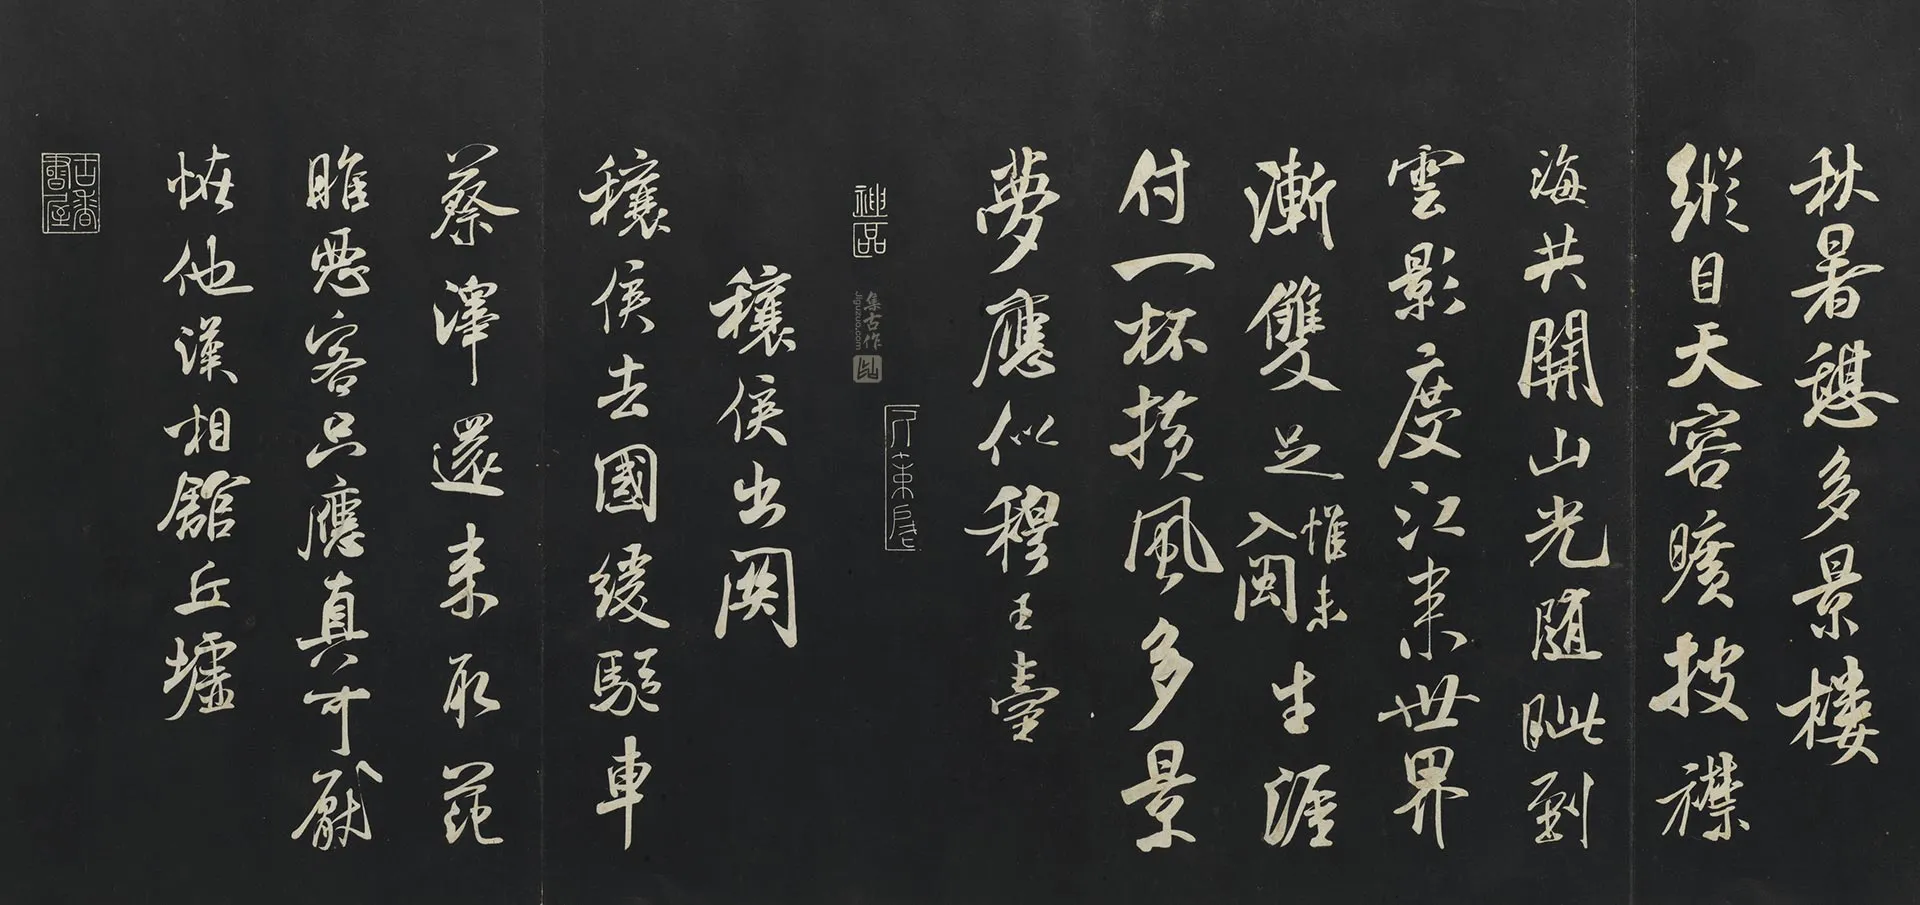 秋暑憩多景樓
縱目天容曠披襟
海共開山光隨眦到
雲影度江来世界
漸雙足惟未入閩生涯
付一杯横風多景
夢應似穆王臺
神品
集古作
jiguzuo.com
穰侯出関
穰侯去國緩驅車
蔡澤還来取范
睢惡客只應真可厭
恠他漢相舘丘墟
古香書屋